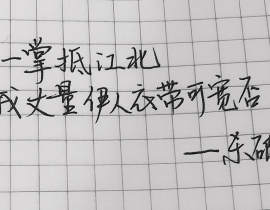 一掌抵江北
我丈量伊人衣带可宽否
——东